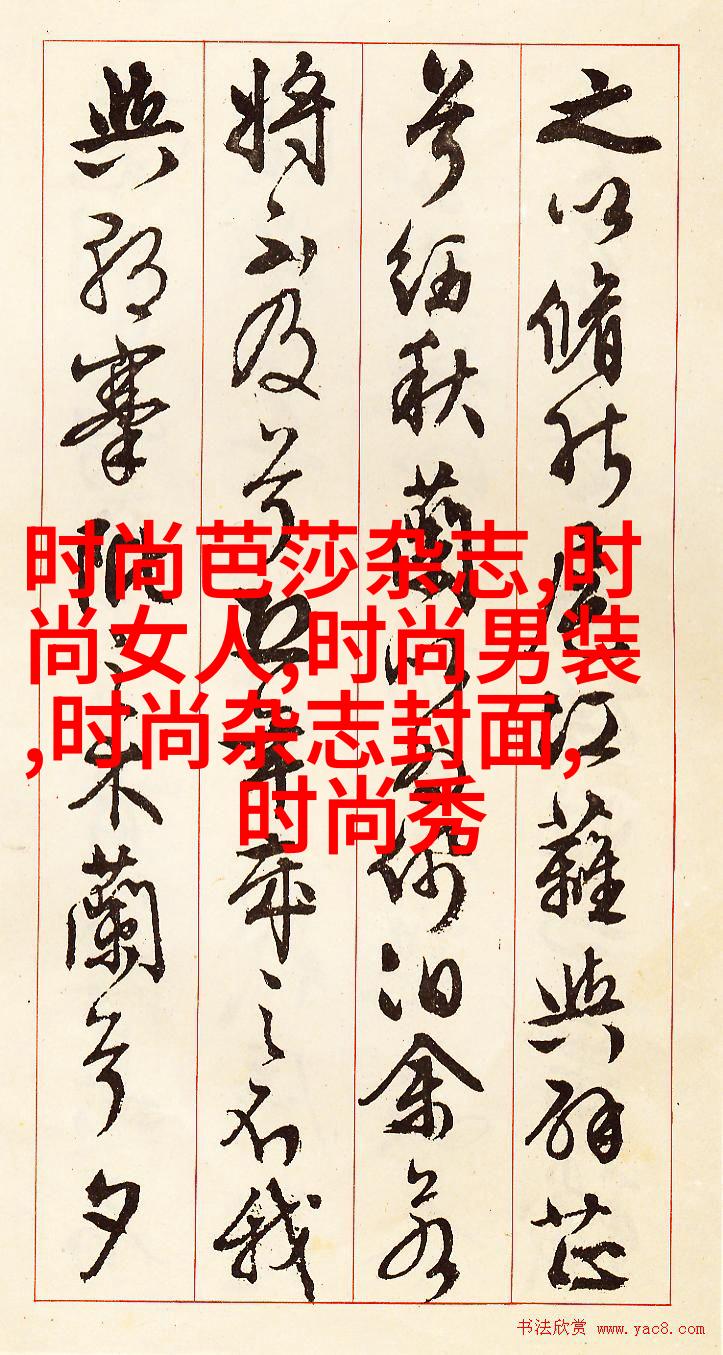 之以脩能扈江蘺與辟芷
兮紉秋蘭以為佩汩余若
將不及兮恐年歲之不我
與朝搴阰之木蘭兮夕
时尚芭莎杂志,时
尚女人,时尚男装
,时尚杂志封面,
时尚秀
书法欣赏 www.yac8.com